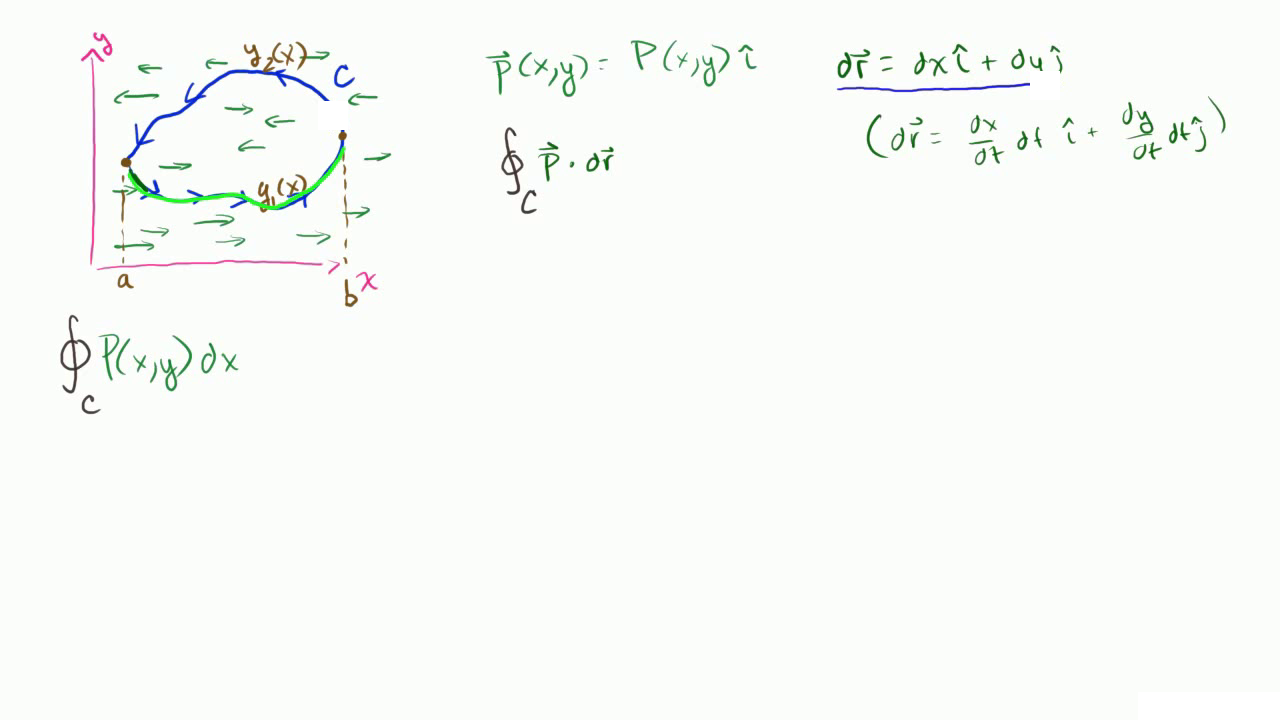 y
y₂(x)
C
y₁(x)
a
b
x
P⃗(x,y) = P(x,y) î
∮_C P⃗ · dr⃗
dr⃗ = dx î + dy ĵ
(dr⃗ = dx/dt dt î + dy/dt dt ĵ)
∮_C P(x,y) dx